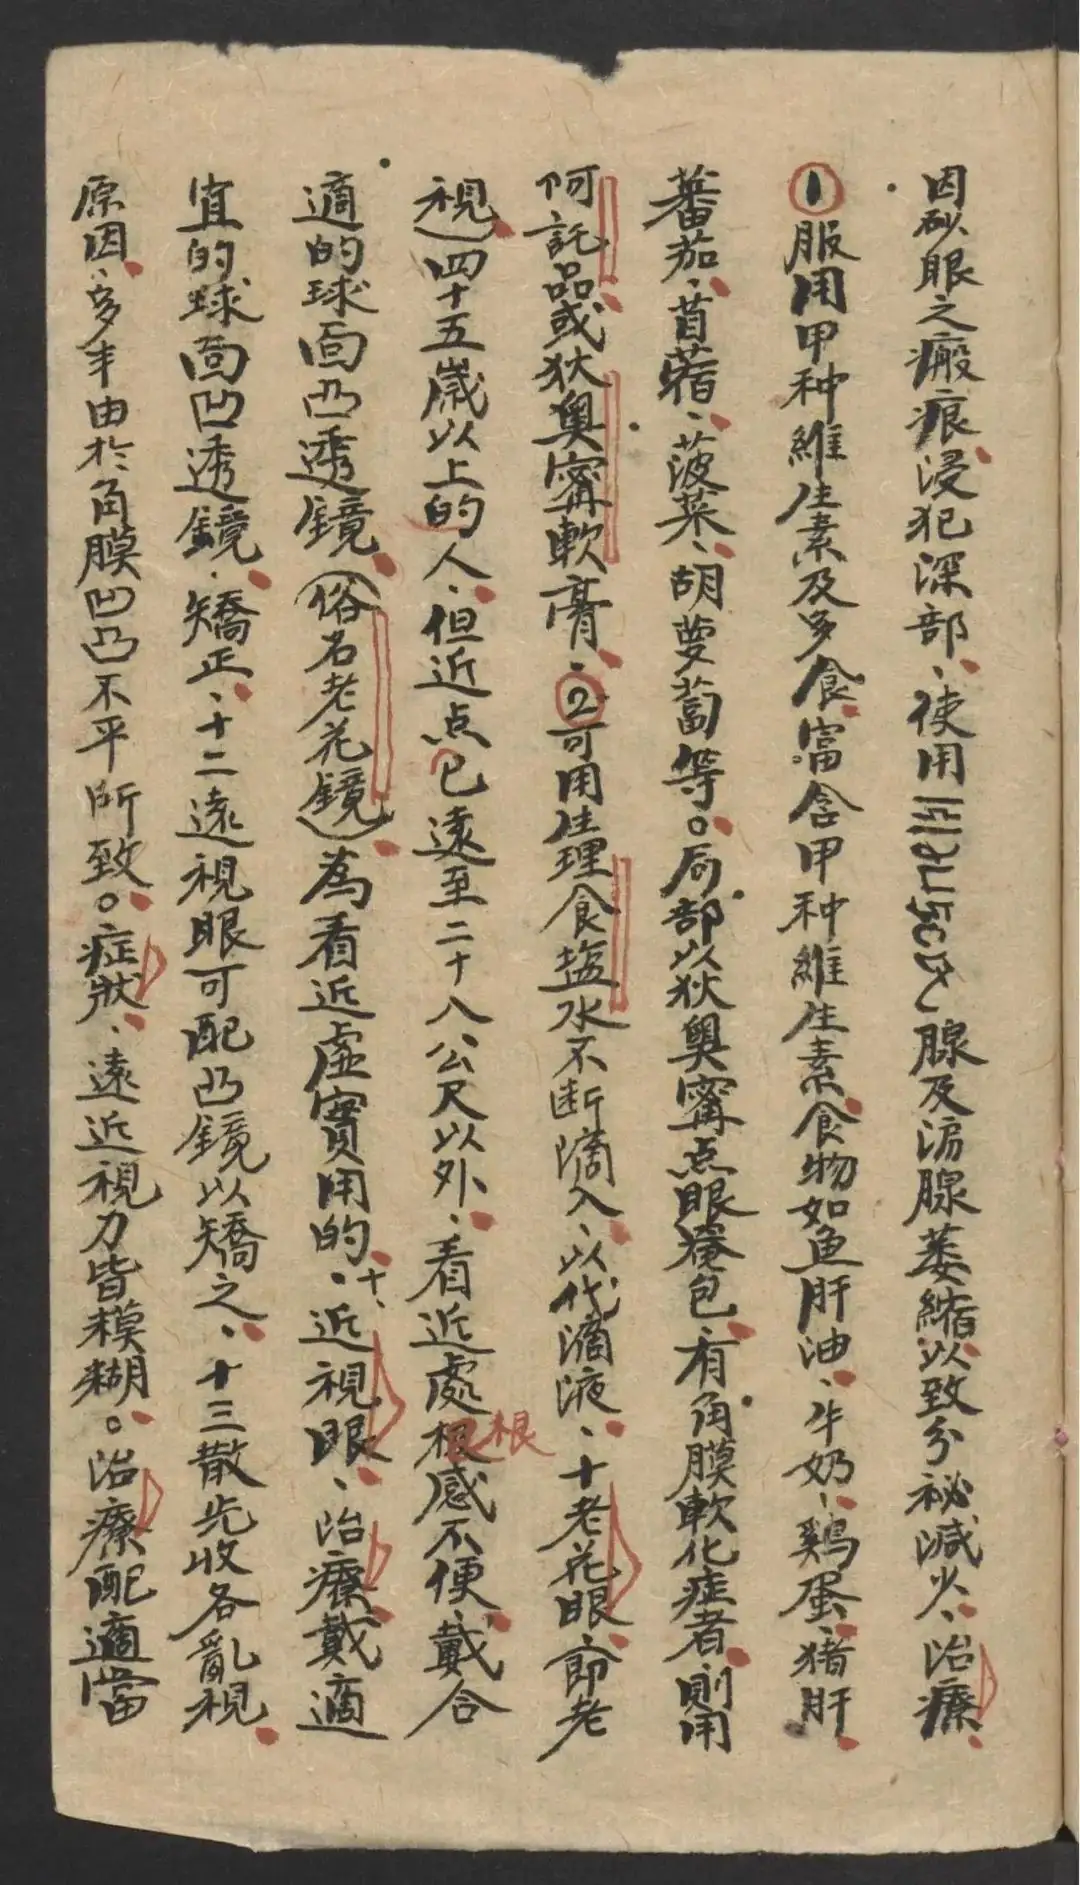 因砂眼之瘢痕浸犯深部、使用腺及淚腺萎縮以致分祕減少、治療、
①服用甲种維生素及多食富含甲种維生素食物如魚肝油、牛奶、鷄蛋、猪肝
蕃茄、苜蓿、菠菜、胡蘿蔔等。局部以狄奧寗点眼奄包、有角膜軟化症者、則用
阿託品或狄奧寗軟膏、②可用生理食塩水不断滴入、以代淚液、十老花眼、即老
視(四十五歲以上的人、但近点已遠至二十八公尺以外、看近處根感不便、戴合
根
適的球面凸透鏡(俗名老花鏡)為看近處實用的、十、近視眼、治療、戴適
宜的球面凹透鏡、矯正、十二遠視眼可配凸鏡以矯之、十三散光收名亂視、
原因、多半由於角膜凹凸不平所致。症狀、遠近視力皆模糊。治療配適當